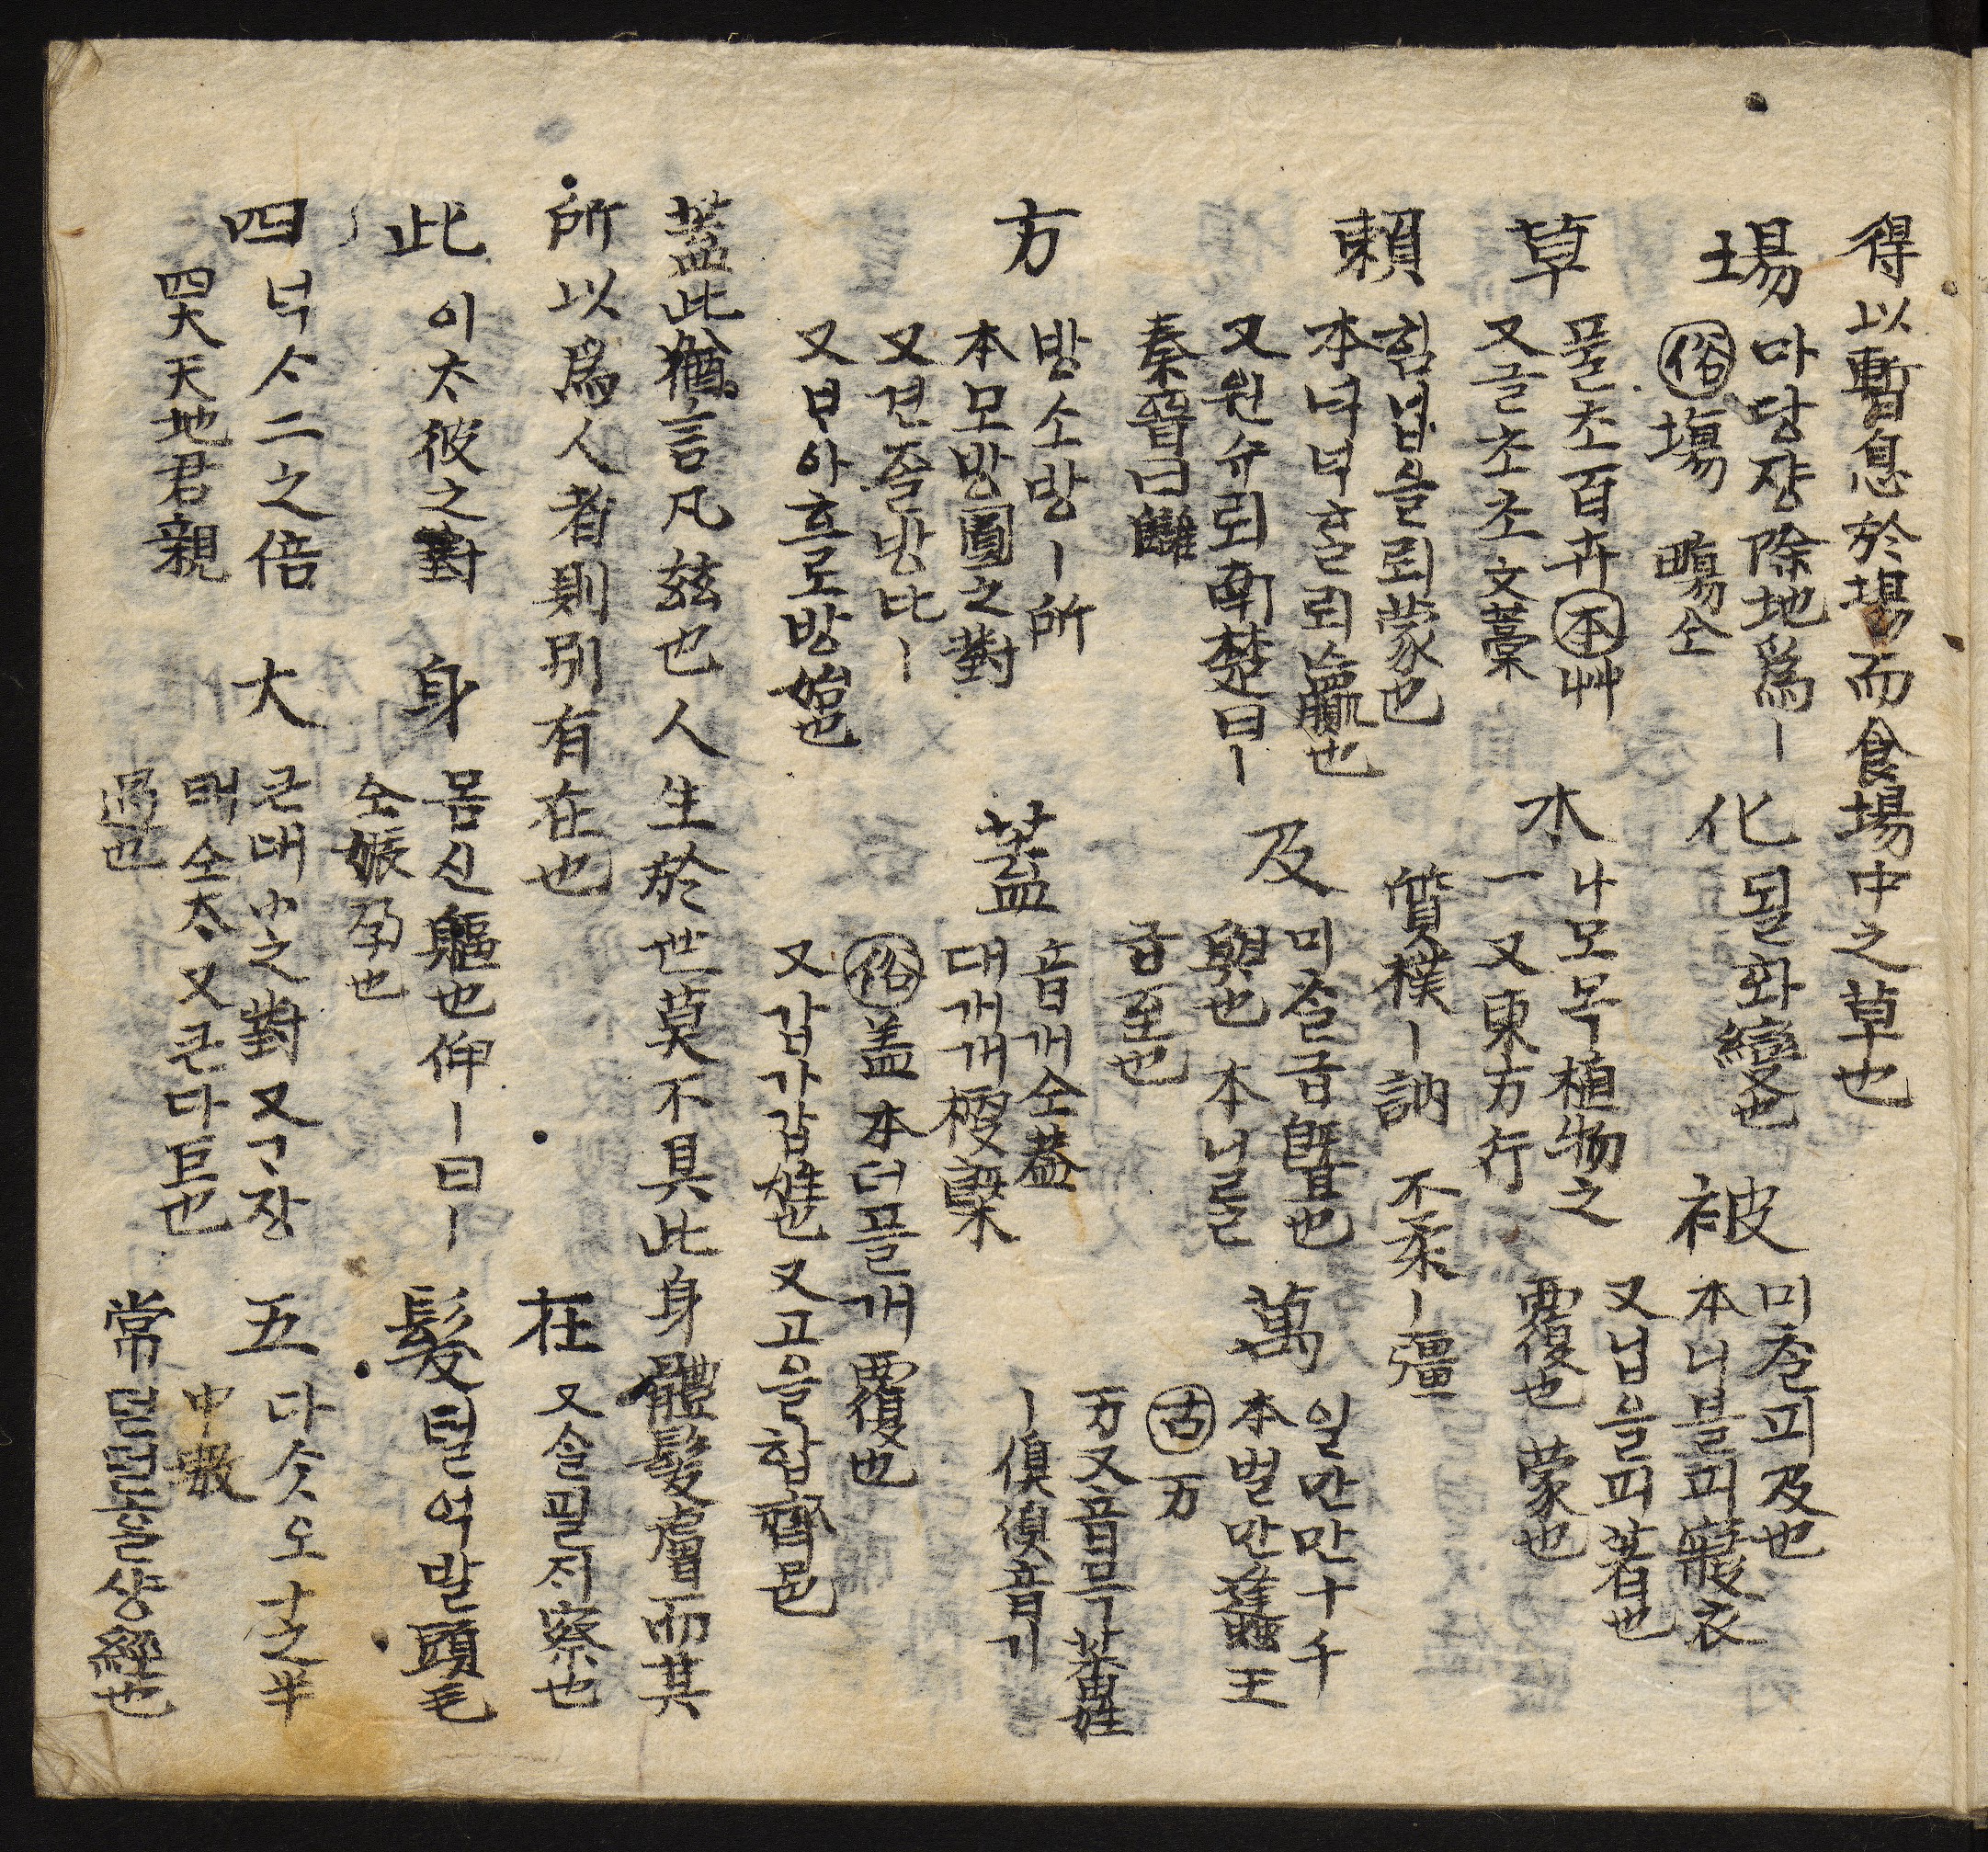 得以暫息於場而食場中之草也
場 마당쟝除地爲ㅣ
俗塲 畼仝
化 될화變也
被 미츨피及也
本니블피寢衣
又닙을피著也
覆也 蒙也
草 플초百卉本艸
又글초초文藁
木 나모목植物之
一又東方行
質樸ㅣ訥 不柔ㅣ彊
賴 힘닙을뢰蒙也
本녁녁홀뢰贏也
又원슈뢰南楚曰ㅣ
秦晉曰讎
及 미츨급曁也
與也 本니를
급至也
萬 일만만十千
本벌만蠭王
古万
万又音믁蕃姓
ㅣ俟俟音기
方 방소방ㅣ所
本모방圓之對
又견졸방比ㅣ
又보아흐로방始也
蓋 音개仝葢
대개개梗槩
俗盖 本더플개覆也
又갑가갑雖也 又고을합齊邑
蓋此猶言凡玆也人生於世莫不具此身體髮膚而其
所以爲人者則別有在也
在 又슬필지察也
此 이ᄎ彼之對
身 몸신軀也伸ㅣ曰ㅣ
仝娠孕也
髮 털억발頭毛
四 넉ᄉ二之倍
四大天地君親
大 큰대小之對 又ᄀ장
태仝太 又큰다巨也
過也
五 다ᄉᆺ오十之半
中數
常 덛덛홀샹經也